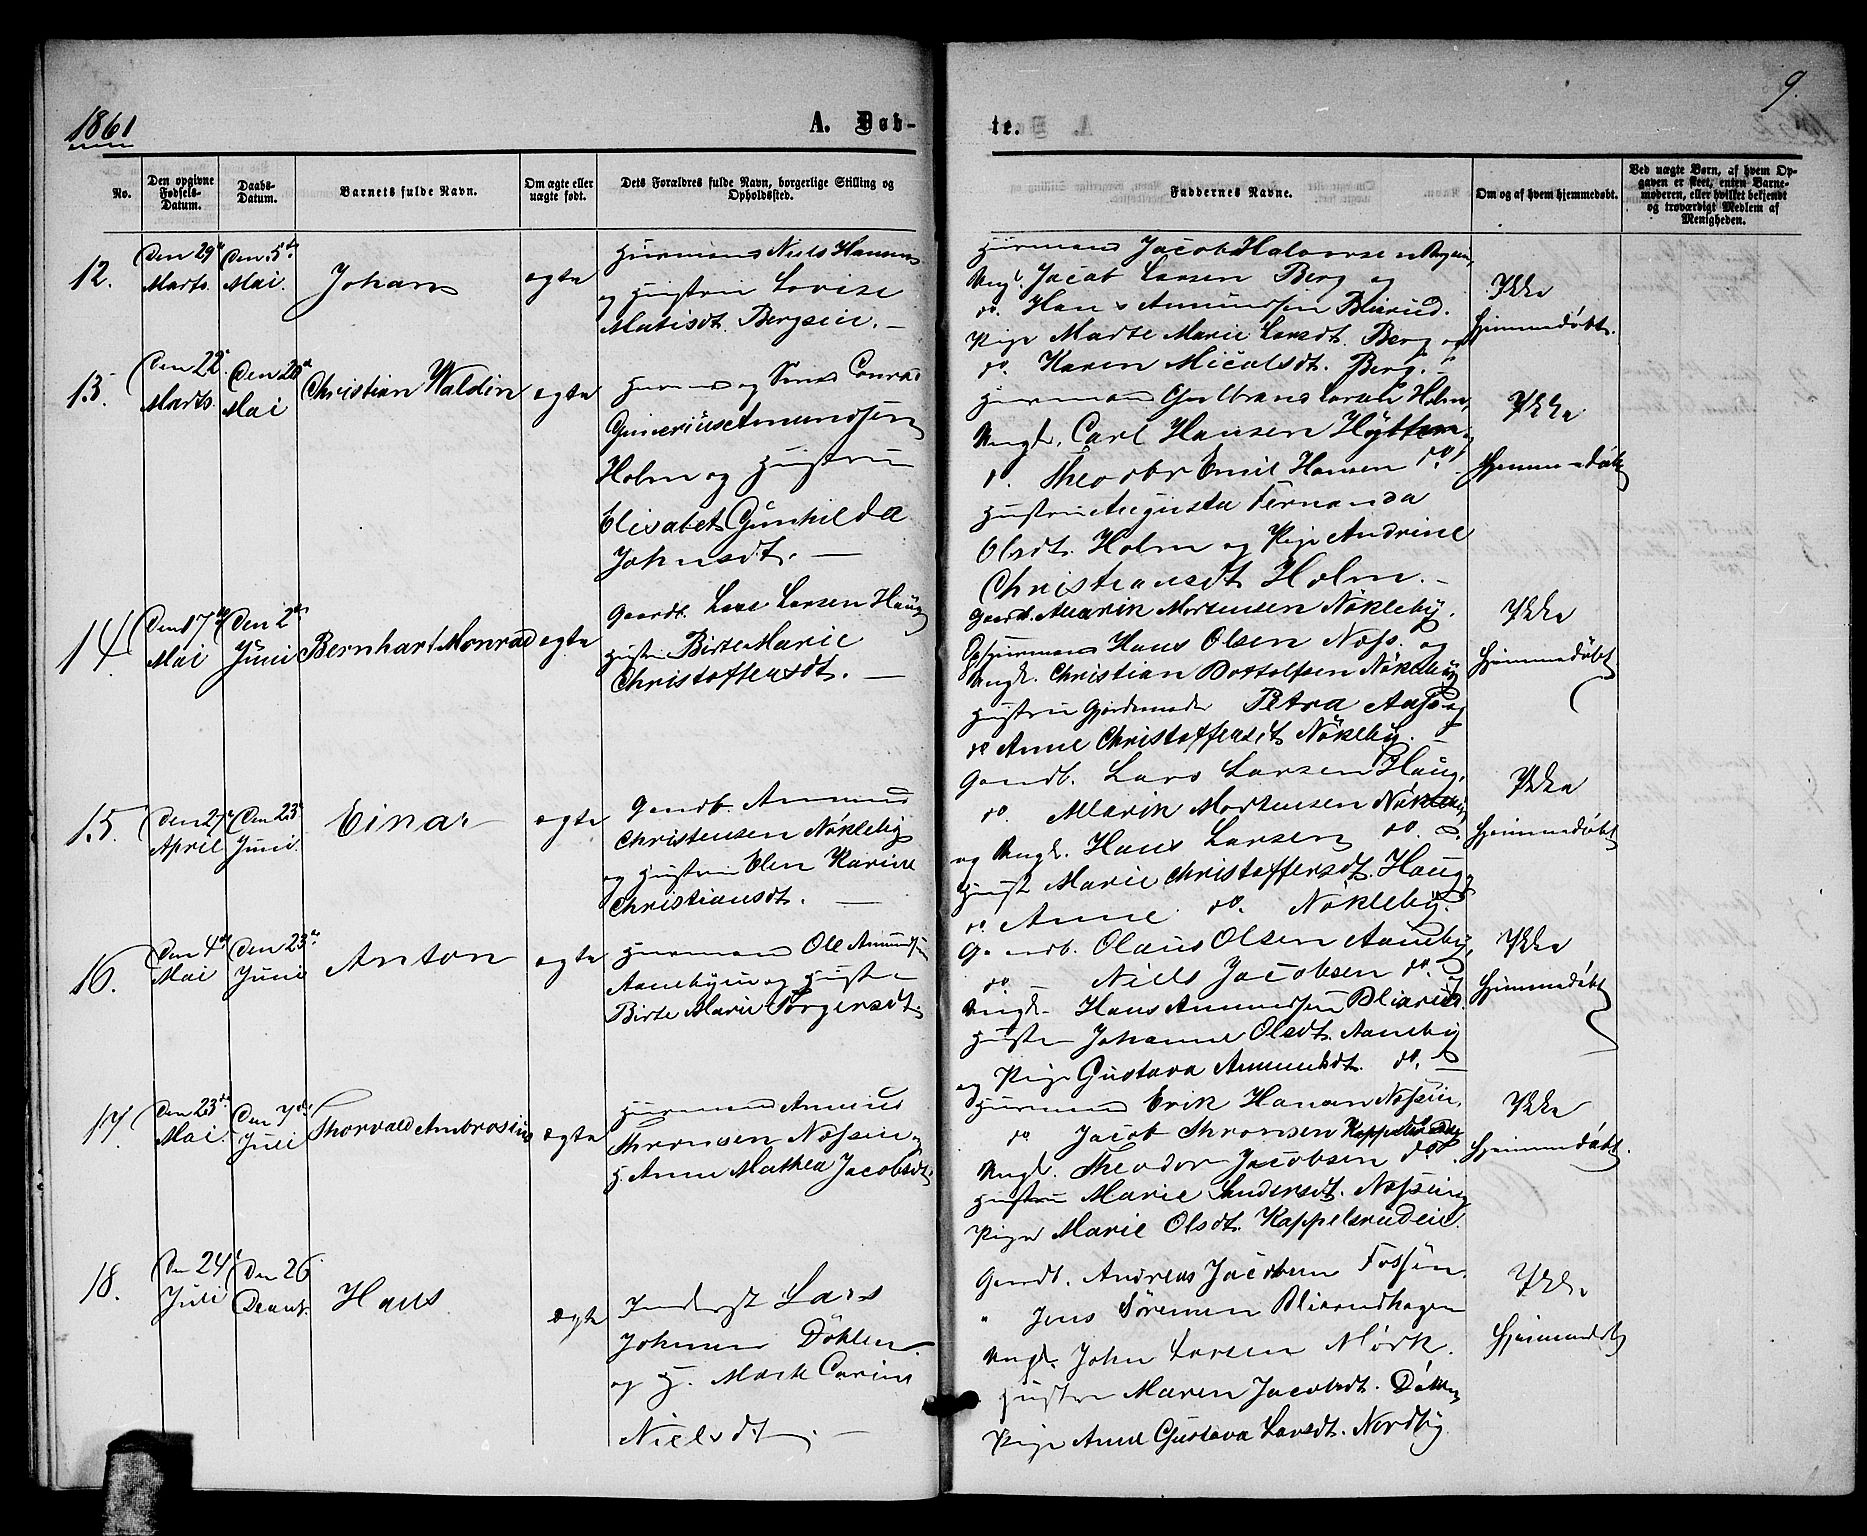 1861
A. Døb-
te.
9.
No.
Den opgivne Fødsels-Datum.
Daabs-Datum.
Barnets fulde Navn.
Om ægte eller uægte født.
Dets Forældres fulde Navn, borgerlige Stilling og Opholdssted.
Faddernes Navne.
Om og af hvem hjemmedøbt.
Ved uægte Børn, af hvem Op-
gaven er skeet, enten Barne-
moderen, eller hvilket bekjendt
og troværdigt Medlem af
Menigheden.
12.
Den 29de
Marts
Den 5te
Mai.
Johan
ægte
Huusmand Niels Hansen
og Hustrue Lovise
Matisdt. Bergseie. —
Huusmand Jacob Halvorsen
Ungk. Jacob Larsen Berg og
do. Hans Amundsen Blixrud.
Pige Marte Marie Larsdt. Berg og
do. Karen Micalsdt. Berg. —
Ikke
hjemmedøbt.
13.
Den 22
Marts
Den 20de
Mai
Christian Waldin
ægte
Huusmd og Smed Conrad
Guneriüs Amundsen
Holm og Hustrue
Elisabet Gunhilda
Johnsdt. —
Huusmand Gulbrand Larsen Holm,
Ungk. Carl Hansen
do. Theodor Emil Hansen do.
Hustrue Augusta Fernanda
Olsdt. Holm og Pige Andrine
Christiansdt Holm. —
Ikke
hjemmedøbt
14.
Den 17de
Mai
Den 2den
Juni
Bernhart Monrad
ægte
Gaardb. Lars Larsen Haug
Hustrue Birte Marie
Christoffersdt. —
Gaardb. Marik Mortensen Nökleby.
Huusmand Hans Olsen Næss. og
Ungk. Christian Bottolfsen Nökleby
Hustrue Gjordemoder Petra Aas og
do Anne Christoffersdt Nökleby. —
Ikke
hjemmedøbt
15.
Den 27
April
Den 23de
Juni.
Einar
ægte
Gaardb. Amund
Christensen Nökleby
og Hustrue Elen Karine
Christiansdt. —
Gaardb. Lars Larsen Haug.
do. Marik Mortensen Nökleby
og Ungk. Hans Larsen do.
Hust Marie Christoffersdt. Haug
do Anne do. Nökleby.
Ikke
hjemmedøbt
16.
Den 4de
Mai
Den 23de
Juni
Anton
ægte
Huusmand Ole Amundsen
Aanebyeie og Hustrue
Birte Marie Torgersdt.
Gaardb. Olaus Olsen Aaneby
do Niels Jacobsen do.
Ungk. Hans Amundsen Blixrud.
Hustrue Johanne Olsdt. Aaneby
og Pige Gustava Amundsdt. do. —
Ikke
hjemmedøbt
17.
Den 23de
Mai.
Den 7de
Juli
Thorvald Ambrosius
ægte
Huusmand Amund
Thronsen Næsseie
H. Anne Mathea Jacobsdt.
Huusmand Erik Hansen Næsseie.
do Jacob Thronsen
Ungk. Theodor Jacobsen do
Hustrue Marie Andersdt. Næsseie,
Pige Marie Olsdt. Kappelsrudeie.
Ikke
hjemmedøbt.
18.
Den 24de
Juli
Den 26
Hans
ægte
Inderst Lars
Johnsen Döhlen
og H. Marte Carine
Nielsdt. —
Gaardb. Andreas Jacobsen Fossen
" Jens Sörensen Blixrudhagen
Ungk. John Larsen Mörk.
Hustrue Maren Jacobsdt. Döhlen
Pige Anne Gustava Larsdt. Nordby.
Ikke
hjemmedøbt